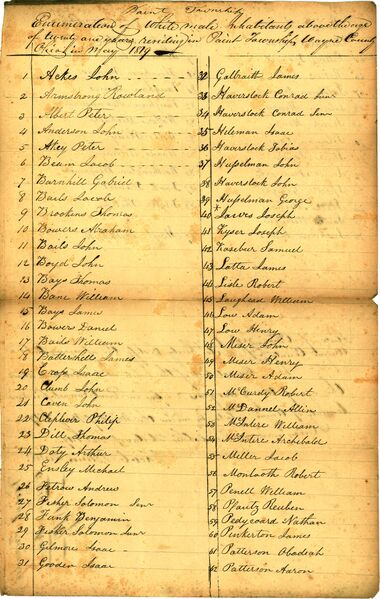 Paint Township
Enumeration of White male inhabitants above the age
of twenty one years, residing in Paint Township Wayne County
Ohio in May 1819
1 Akes John
2 Armstrong Rowland
3 Albert Peter
4 Anderson John
5 Akey Peter
6 Beam Jacob
7 Barnhill Gabriel
8 Bails Jacob
9 Brookins Thomas
10 Bowers Abraham
11 Bails John
12 Boyd John
13 Bays Thomas
14 Bane William
15 Bays James
16 Bower Daniel
17 Bails William
18 Battershell James
19 Isaac
20 Clumb John
21 Coven John
22 Philip
23 Dill Thomas
24 Doty Arthur
25 Ensley Michael
26 Fetrow Andrew
27 Fisher Solomon Senr
28 Funk Benjamin
29 Fisher Solomon Junr
30 Gilmore Isaac
31 Gooden Isaac
32 Galbraith James
33 Haverstock Conrad Junr
34 Haverstock Conrad Senr
35 Isaac
36 Haverstock Tobias
37 Husselman John
38 Haverstock John
39 Husselman George
40 Jarves Joseph
41 Kyser Joseph
42 Samuel
43 Latta James
44 Lisle Robert
45 Laughead William
46 Low Adam
47 Low Henry
48 Miser John
49 Miser Henry
50 Miser Adam
51 McCurdy Robert
52 McDannel
53 McIntire William
54 McIntire Archibald
55 Miller Jacob
56 Monteoth Robert
57 Penell William
58 Pfautz Reuben
59 Pedycoard Nathan
60 Pinkerton James
61 Patterson Obadiah
62 Patterson Aaron